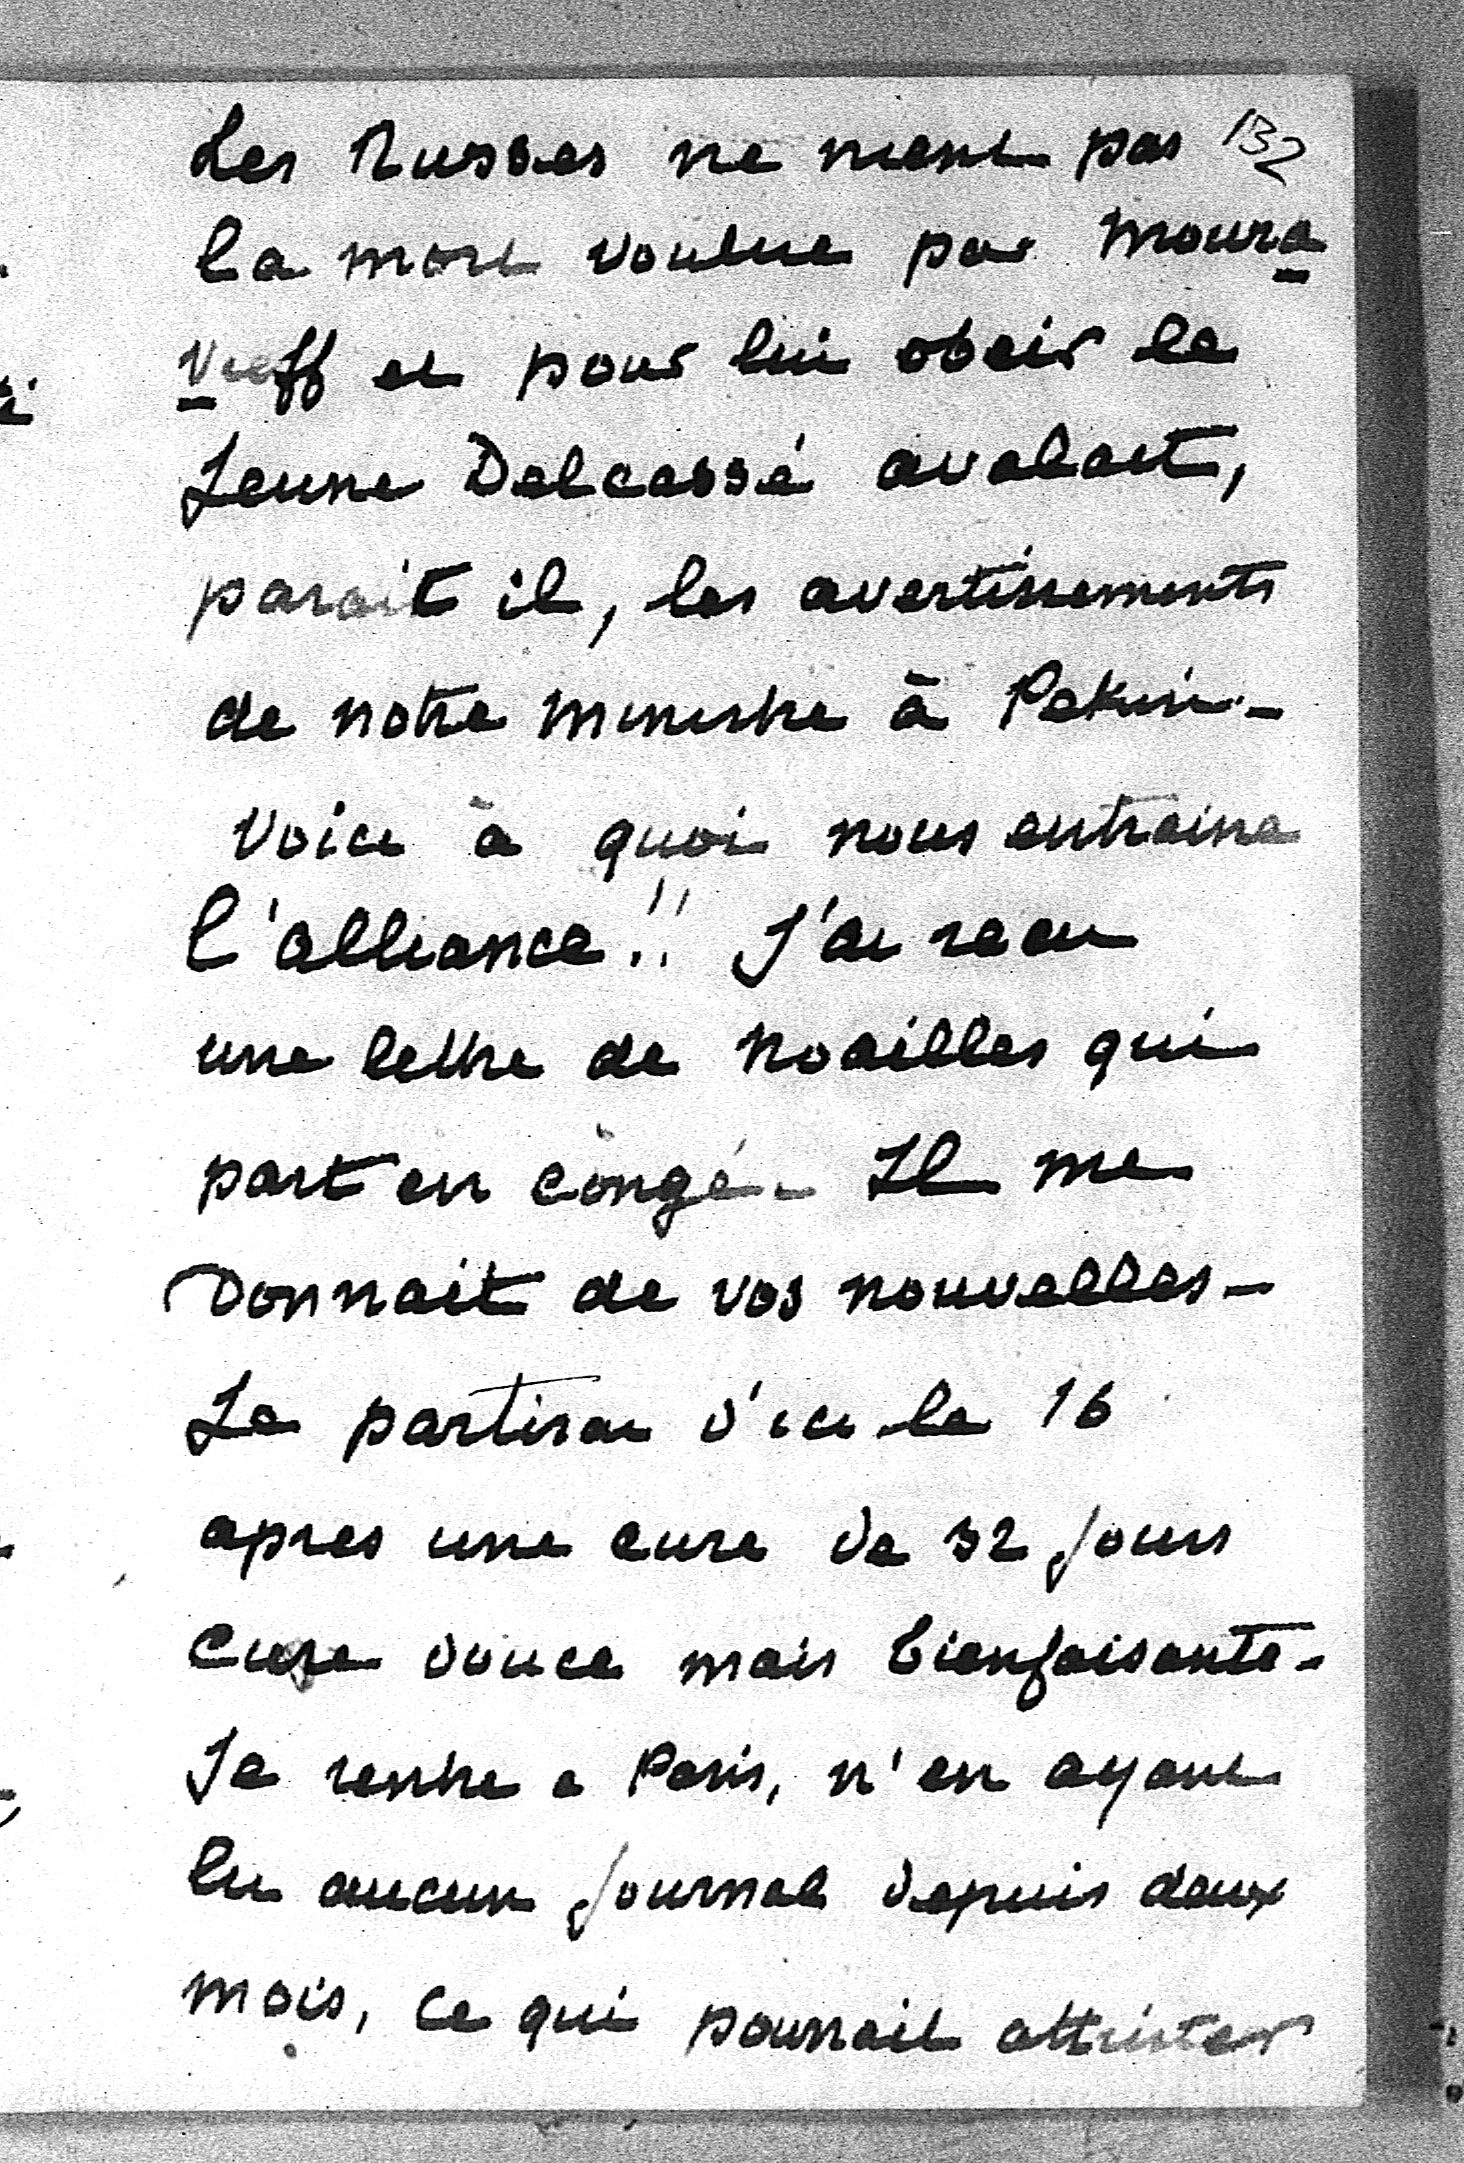 132
Les Russes ne nient pas
la mort voulue par Moura
vieff et pour lui obeir le
Jeune Delcassé avalait,
parait il, les avertissements
de notre ministre à Pekin -
Voici à quoi nous entraine
l'alliance !! J'ai recu
une lettre de Noailles qui
part en congé - Il me
Donnait de vos nouvelles -
Je partirai d'ici le 16
apres une cure de 32 jours
Cure douce mais bienfaisante -
Je rentre a Paris, n'en ayant
lu aucun journal depuis deux
mois, ce qui pourrait attrister